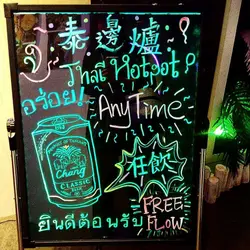 泰邊爐
Thai Hotpot
อร่อย!
AnyTime
Chang
CLASSIC
任飲
FREE
FLOW
ยินดีต้อนรับ